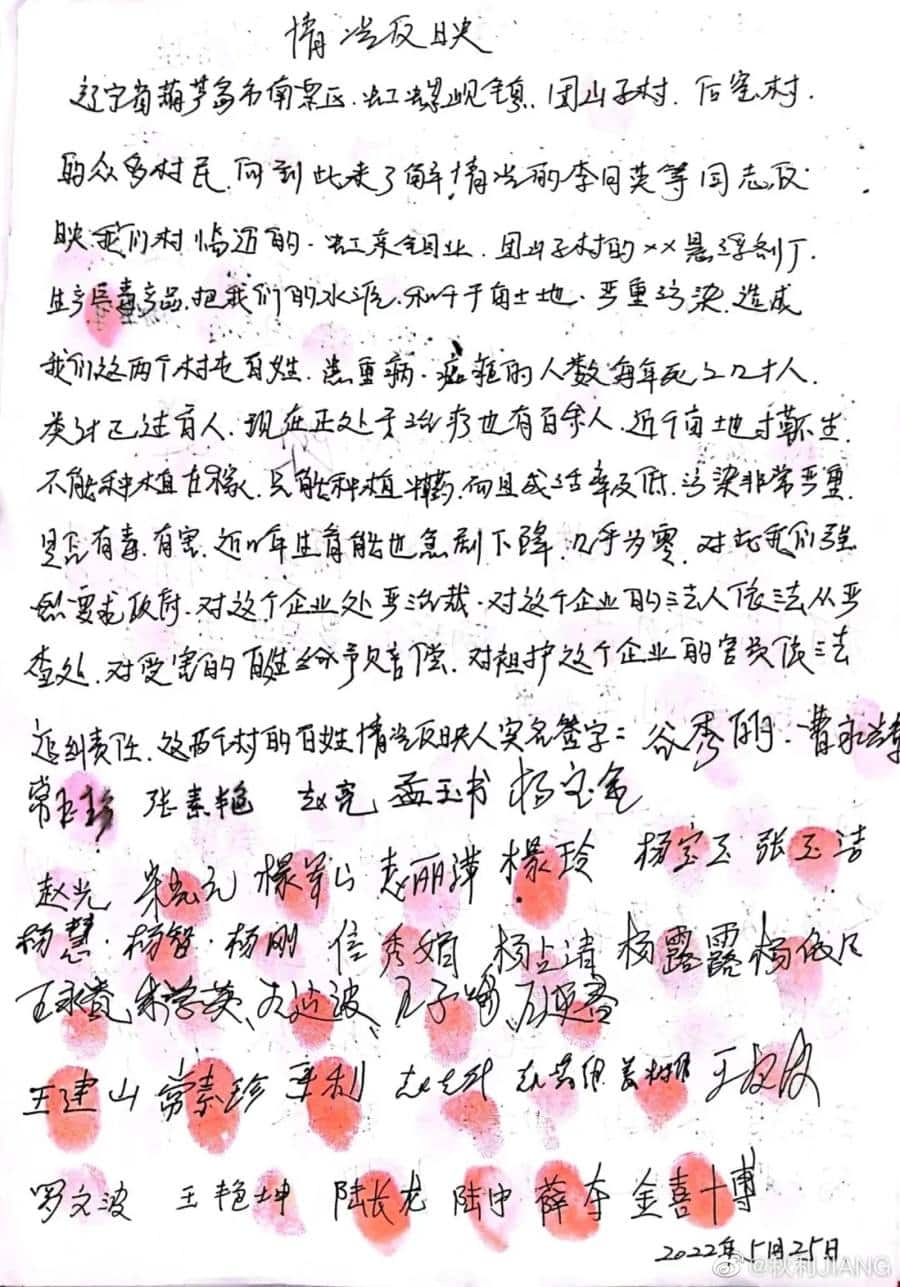 情况反映
辽宁省葫芦岛市南票区虹螺岘镇、团山子村、后窑村、
的众多村民、向到此来了解情况的李同英等同志反
映、我们村临近的、虹京钼业、团山子村的××悬浮剂厂、
生产巨毒产品、把我们的水源、和千亩土地、严重污染、造成
我们这两个村屯百姓、患重病、癌症的人数每年死亡几十人、
类计已过百人、现在正处于治疗也有百余人、近千亩地寸草不生、
不能种植庄稼、只能种植中药、而且成活率及低、污染非常严重、
是否有毒、有害、近几年生育能也急剧下降、几乎为零、对此我们强
烈要求政府、对这个企业处严治裁、对这个企业的法人依法从严
查处、对受害的百姓给予赔偿、对袒护这个企业的官员依法
追纠责任、这两个村的百姓情况反映人实名签字：谷秀明、曹永
常玉珍 张素艳 赵亮 孟玉书 杨宝金
赵光 丽萍 玲 杨宝玉 张玉洁
杨慧、杨智、杨刚 信秀娟 杨占清 杨露露 杨
王永贵 朱学英、波、
王建山 常素珍 利 王
罗文波 王艳坤 陆长龙 陆中 薛 金喜 博
2022年5月25日
@秋利JIANG